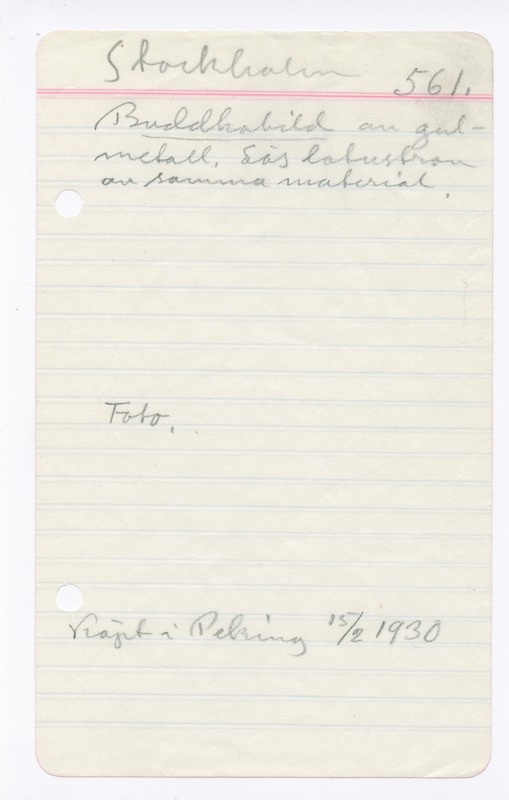 Stockholm 561.
Buddhabild av gul-
metall. Lös lotustron
av samma material.
Foto.
Köpt i Peking 15/2 1930